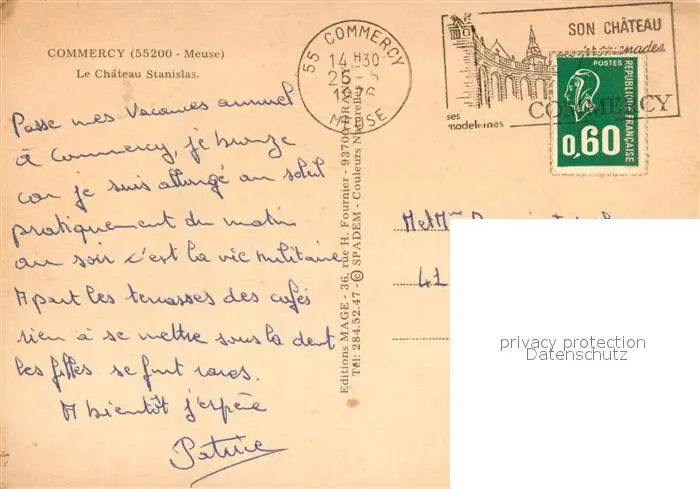 COMMERCY (55200 - Meuse)
Le Château Stanislas.
55 COMMERCY
14 H30
25 - 5
1976
MEUSE
SON CHÂTEAU
ses promenades
COMMERCY
ses
madeleines
POSTES
RÉPUBLIQUE FRANÇAISE
0,60
Passe mes Vacances annuel
à Commercy, je bronze
car je suis allongé au soleil
pratiquement du matin
au soir c'est la vie militaire
A part les terrasses des cafés
rien à se mettre sous la dent
les filles se font rares.
A bientôt j'espère
Patrice
Editions MAGE - 36, rue H. Fournier - 93700
Tél: 284.52.47 - © SPADEM - Couleurs Naturelles
M et Mme
41
privacy protection
Datenschutz